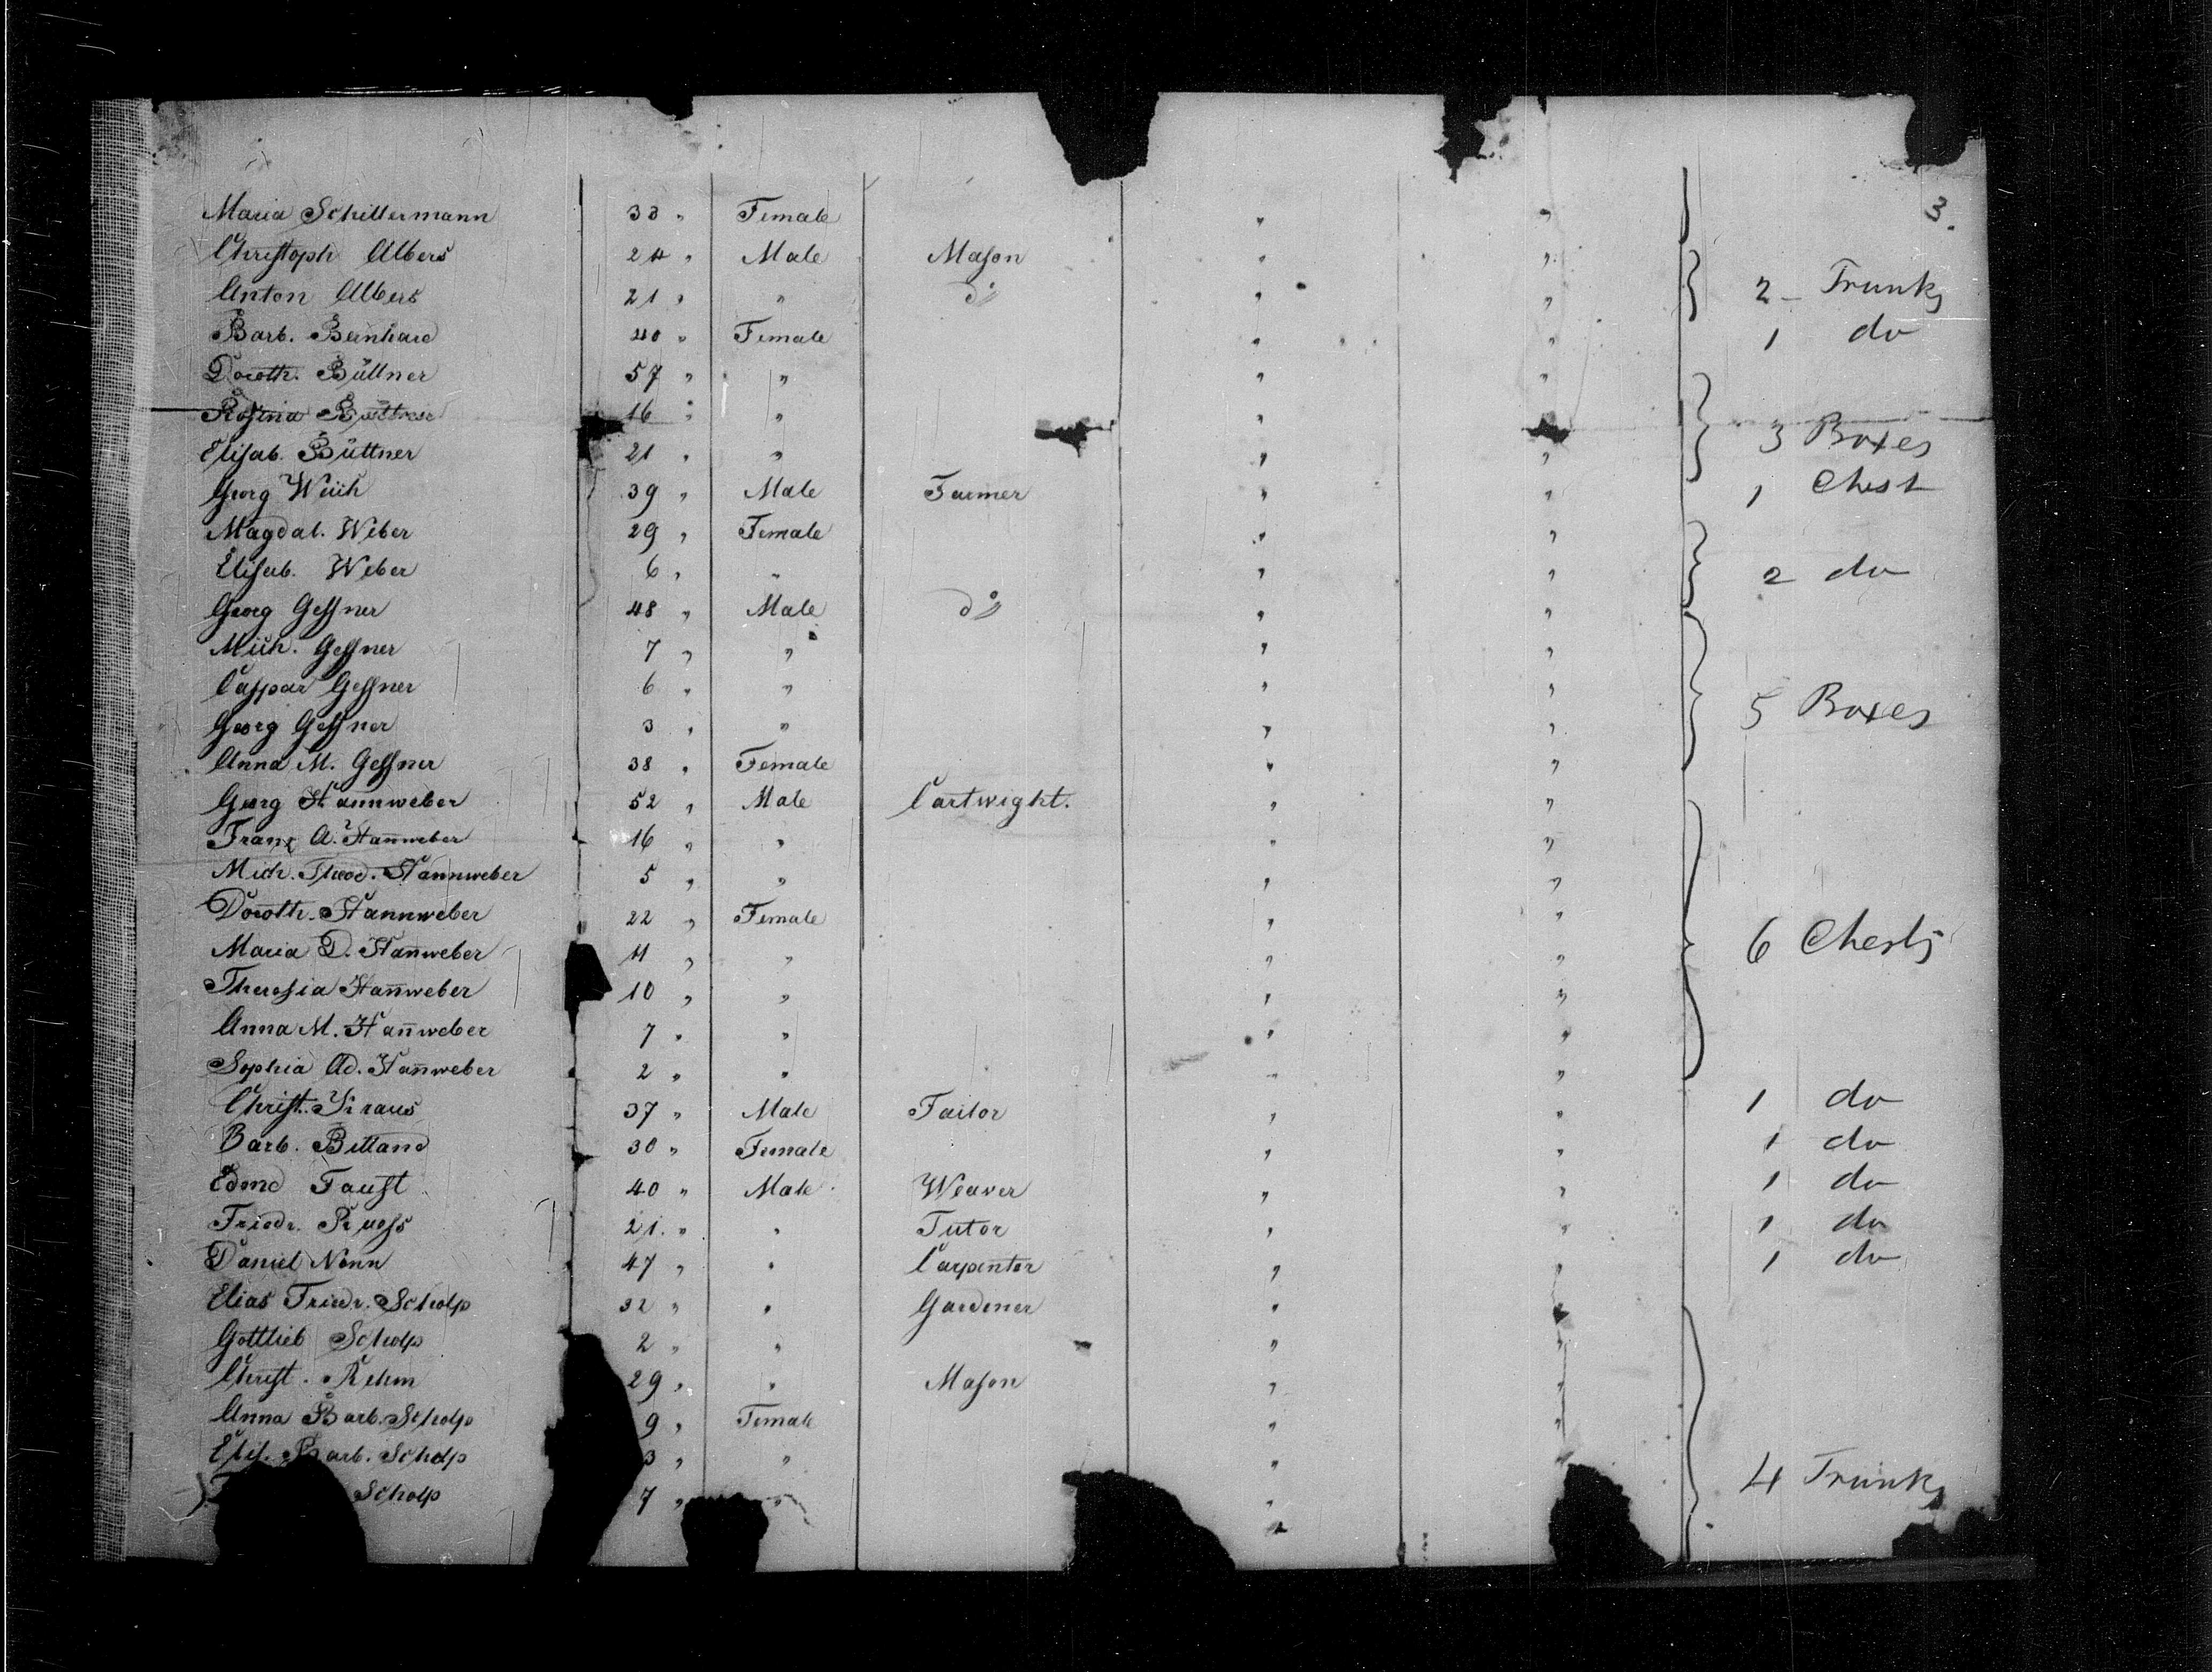 3.
Maria Schillermann 33 " Female " "
Christoph Albers 24 " Male Mason " "
Anton Albers 21 " " do " " 2 - Trunks
Barb. Bernhard 40 " Female " " 1 do
Doroth. Büttner 57 " " " "
Rosina Büttner 16 " " " "
Elisab. Büttner 21 " " " " 3 Boxes
Georg 39 " Male Farmer " " 1 Chest
Magdal. Weber 29 " Female " "
Elisab. Weber 6 " " " " 2 do
Georg Gessner 48 " Male do " "
Mich. Gessner 7 " " " "
Caspar Gessner 6 " " " "
Georg Gessner 3 " " " " 5 Boxes
Anna M. Gessner 38 " Female " "
Georg Hannweber 52 " Male Cartwight. " "
Franz A. Han̄weber 16 " " " "
Mich. Theod. Hannweber 5 " " " "
Doroth. Hannweber 22 " Female " "
Maria D. Han̄weber 11 " " " " 6 Chests
Theresia Han̄weber 10 " " " "
Anna M. Han̄weber 7 " " " "
Sophia Ad. Han̄weber 2 " " " "
Christ. Kraus 37 " Male Tailor " " 1 do
Barb. 30 " Female " " 1 do
Edmd Faust 40 " Male Weaver " " 1 do
Friedr. Pruess 21. " " Tutor " " 1 do
Daniel Nonn 47 " " Carpenter " " 1 do
Elias Friedr. Scholp 32 " " Gardener " "
Gottlieb Scholp 2 " " " "
Christ. Rehm 29 " " Mason " "
Anna Barb. Scholp 9 " Female " "
Elis. Barb. Scholp 3 " " " "
Scholp 7 " " " 4 Trunks